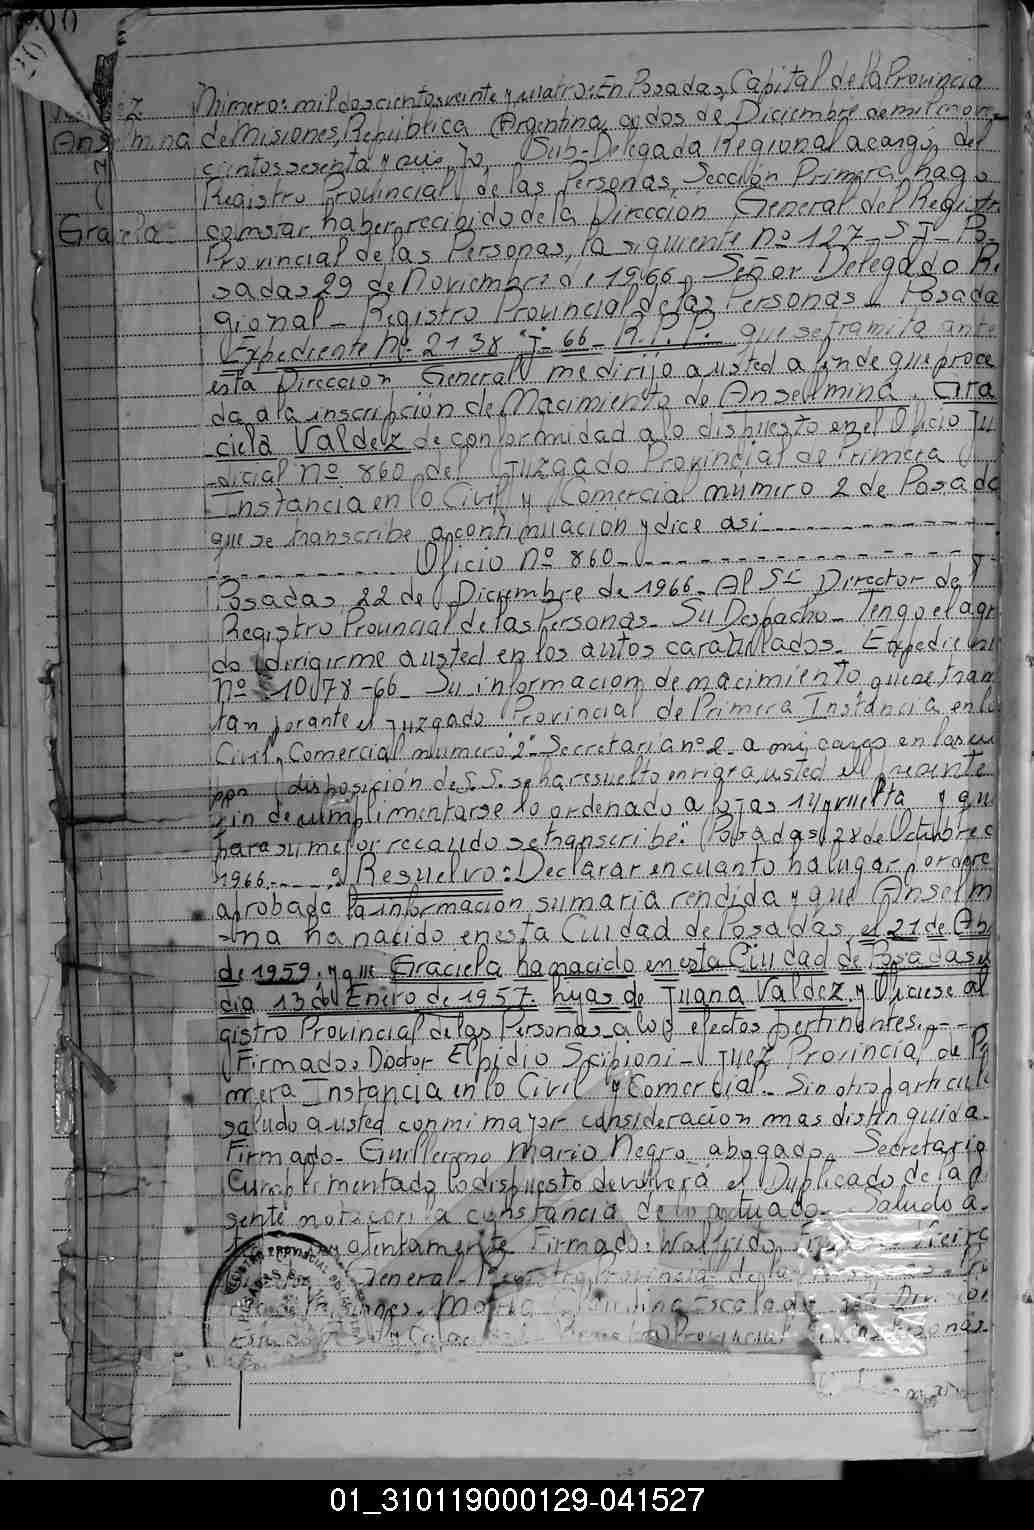 Número: mil doscientos veinte y cuatro: En Posadas, Capital de la Provincia
Anselmina de Misiones, República Argentina, a dos de Diciembre de mil nove-
cientos sesenta y seis, Yo, Sub-Delegada Regional a cargo del
Registro Provincial de las Personas, Sección Primera hago
Graciela constar haber recibido de la Dirección General del Registro
Provincial de las Personas, la siguiente nº 127 S J - Po-
sadas 29 de Noviembre de 1966 - Señor Delegado Re
gional - Registro Provincial de las Personas - Posada
Expediente nº 2138 "J" 66 - R.P.P. que se tramita ante
esta Dirección General me dirijo a usted a fin de que proce
da a la inscripción de Nacimiento de Anselmina, Gra
ciela Valdez de conformidad a lo dispuesto en el Oficio Ju
dicial nº 860 del Juzgado Provincial de Primera
Instancia en lo Civil y Comercial número 2 de Posada
que se transcribe a continuación y dice así
Oficio nº 860-
Posadas, 22 de Diciembre de 1966. Al Sr Director del
Registro Provincial de las Personas. Su Despacho. Tengo el agra
do dirigirme a usted en los autos caratulados. Expediente
nº 1078-66 - Su información de nacimiento que se tram
tan por ante el Juzgado Provincial de Primera Instancia en lo
Civil y Comercial número "2" Secretaría nº 2 a mi cargo en los cu
por disposición de S.S. se ha resuelto en rigra usted el presente
fin de cumplimentarse lo ordenado a fojas 14 y vuelta y que
para su mejor recaudo se transcribe: Posadas, 28 de Octubre d
1966 Resuelvo: Declarar en cuanto ha lugar por dere
aprobada la información sumaria rendida y que Anselm
ina ha nacido en esta Ciudad de Posadas, el 21 de Ab
de 1959. y que Graciela ha nacido en esta Ciudad de Posadas el
día 13 de Enero de 1957. hijas de Juana Valdez y Ofíciese al
gistro Provincial de las Personas a los efectos pertinentes.
Firmado, Doctor Elpidio Scipioni - Juez Provincial de Pri
mera Instancia en lo Civil y Comercial. Sin otro particula
saludo a usted con mi mayor consideración mas distinguida.
Firmado - Guillermo Mario Negro abogado, Secretario
Cumplimentado lo dispuesto devolverá el Duplicado de la p
sente nota con la constancia de lo actuado. Saludo a
atentamente Firmado. Walfrido
General - Registro Provincial de las
Provincial
01_310119000129-041527